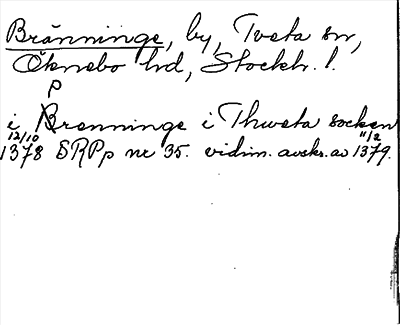 Bränninge, by, Tveta sn,
Öknebo hd, Stockh. l.
p
i Brenninge i Thweta socken
12/10 11/2
1378 SRPp nr 35. vidim. avskr. av 1379.